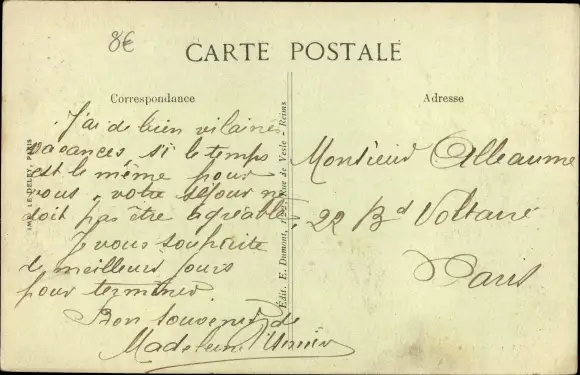 8€
CARTE POSTALE
Correspondance
Adresse
J'ai de bien vilaines
vacances si le temps
est le même pour
vous, votre séjour ne
doit pas être agréable.
Je vous souhaite
de meilleurs jours
pour terminer.
Bon souvenir de
Madeleine
Monsieur Alleaume
22 Bd Voltaire
Paris
IMP. LE DELEY, PARIS
Édit. E. Dumont, Rue de Vesle - Reims